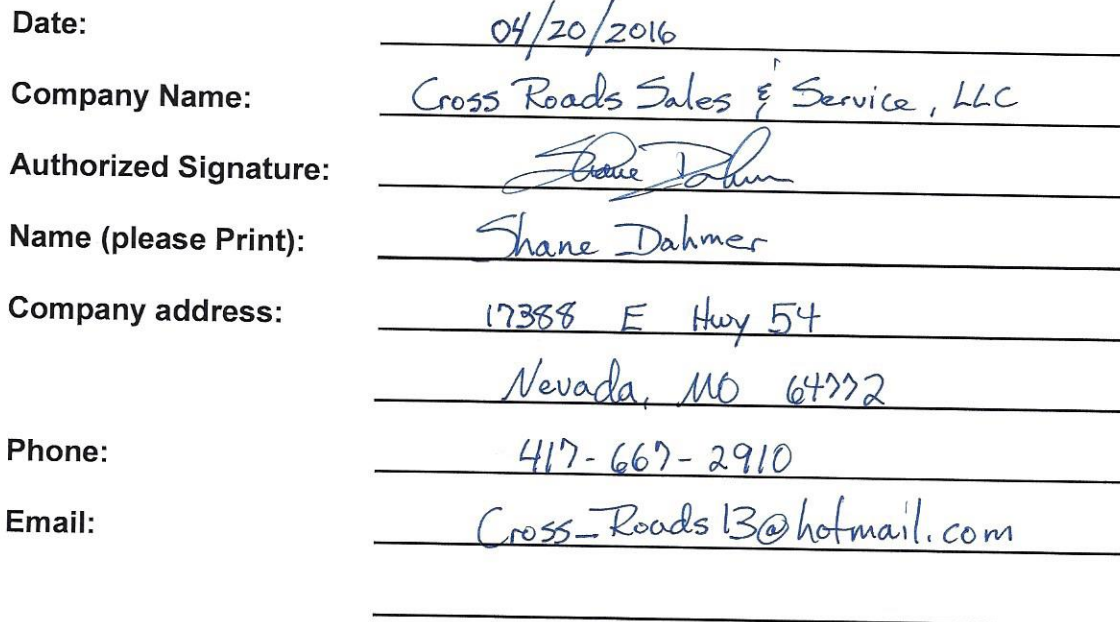 Date: 04/20/2016
Company Name: Cross Roads Sales & Service, LLC
Authorized Signature: Shane Dahmer
Name (please Print): Shane Dahmer
Company address: 17388 E Hwy 54
Nevada, MO 64772
Phone: 417-667-2910
Email: Cross_Roads13@hotmail.com